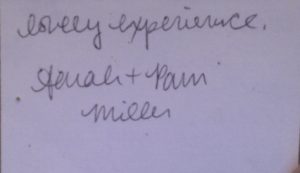 lovely experience.
+ Pam
Miller